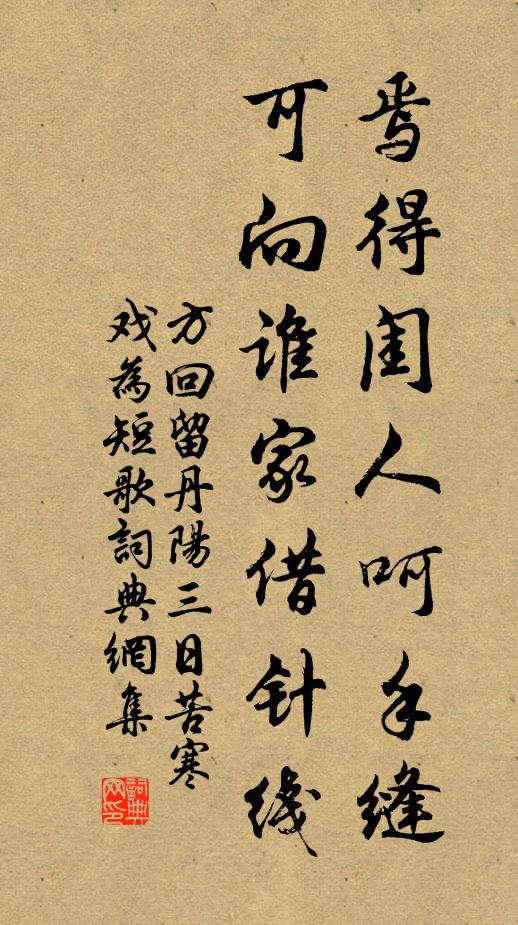 焉得闺人呵手缝
可向谁家借针线
方回留丹陽三日苦寒
戏為短歌詞典網集
詞典
网印